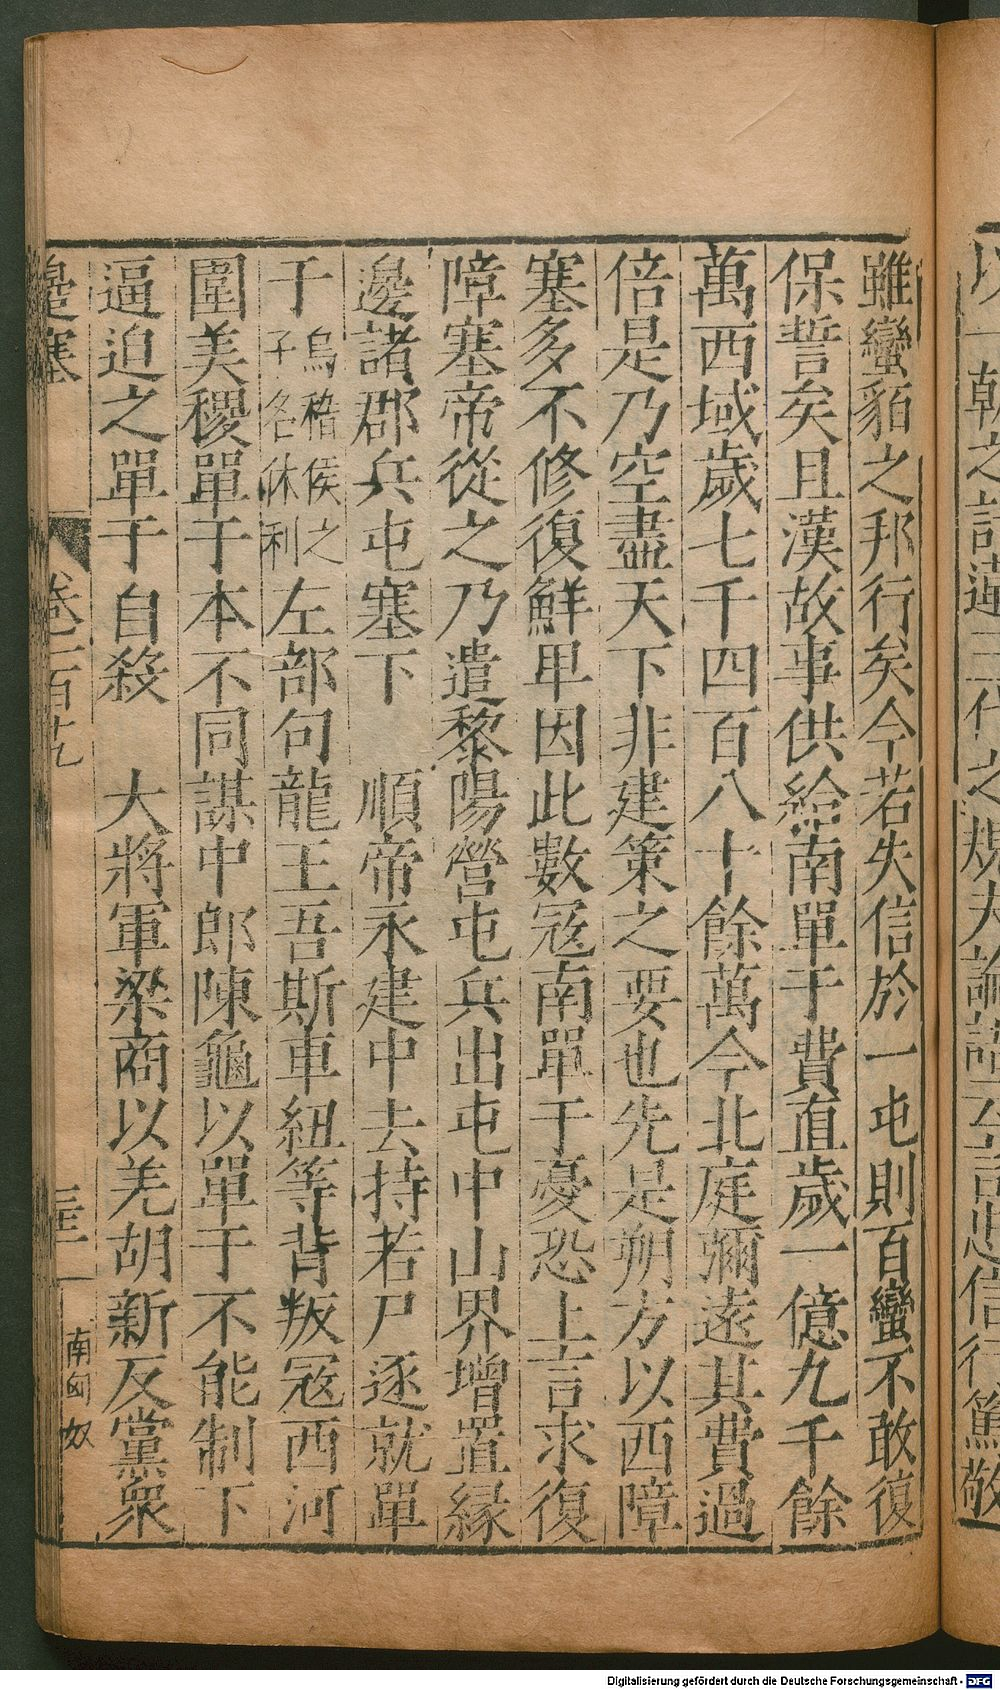 雖蠻貊之邦行矣今若失信於一屯則百蠻不敢復
保誓矣且漢故事供給南單于費直歲一億九千餘
萬西域歲七千四百八十餘萬今北庭彌遠其費過
倍是乃空盡天下非建策之要也先是朔方以西障
塞多不修復鮮卑因此數冦南單于憂恐上言求復
障塞帝從之乃遣黎陽營屯兵出屯中山界增置緣
邊諸郡兵屯塞下　順帝永建中去持若尸逐就單
于烏稽侯之子名休利左部句龍王吾斯車紐等背叛冦西河
圍美稷單于本不同謀中郎陳龜以單于不能制下
逼迫之單于自殺　大將軍梁商以羌胡新反黨衆
邊塞　卷二百九　三十一　南匈奴
Digitalisierung gefördert durch die Deutsche Forschungsgemeinschaft - DFG